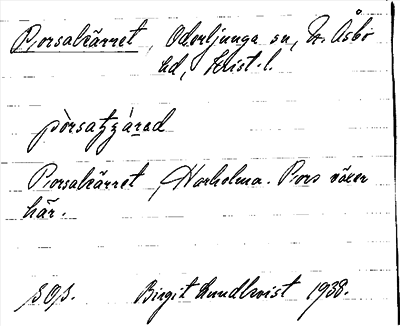 Porsakärret, Oderljunga sn, N. Åsbo
hd, Krist. l.
Porsakärret, Harholma. Pors växer
här.
SOS. Birgit Lundkvist 1938.